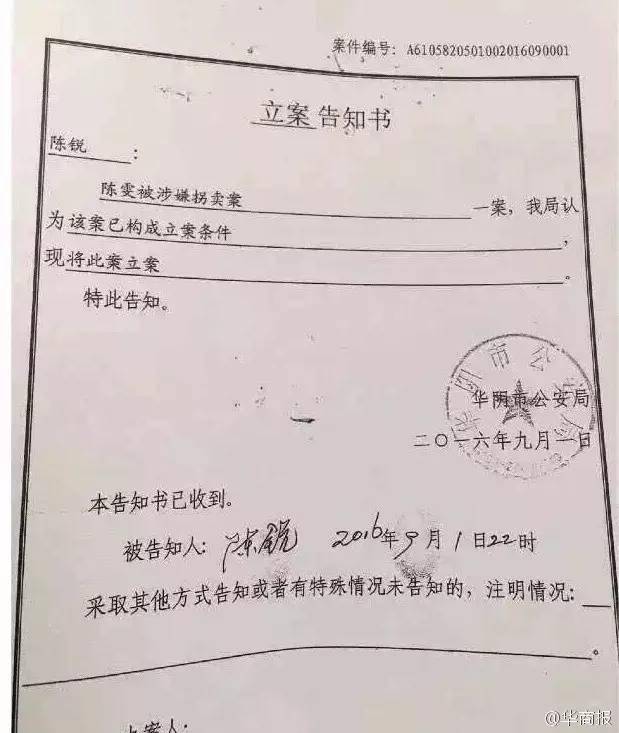 案件编号：A6105820501002016090001
立案告知书
陈锐：
陈雯被涉嫌拐卖案一案，我局认
为该案已构成立案条件，
现将此案立案。
特此告知。
华阴市公安局
华阴市公安局
二〇一六年九月一日
本告知书已收到。
被告知人：陈锐 2016年9月1日22时
采取其他方式告知或者有特殊情况未告知的，注明情况：
。
@华商报